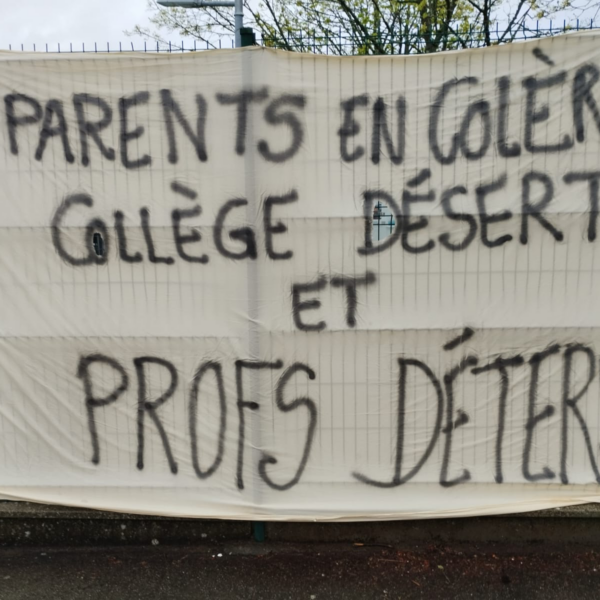 PARENTS EN COLÈR
COLLÈGE DÉSERT
ET
PROFS DÉTER